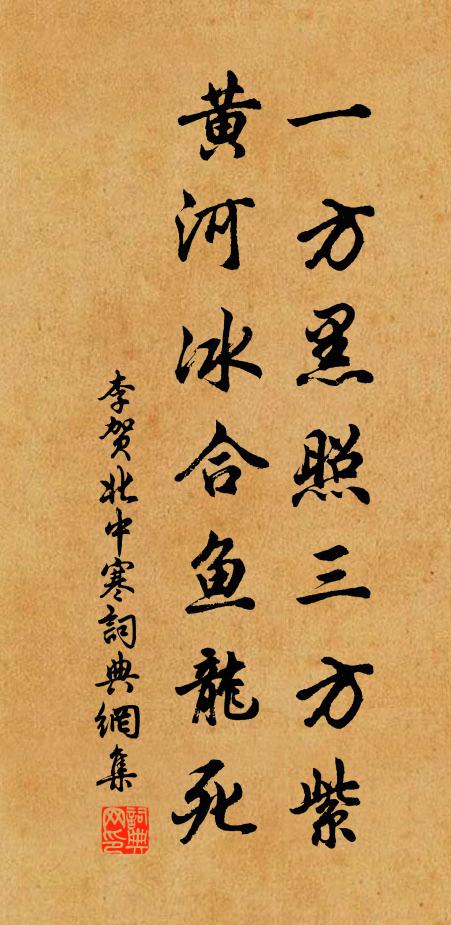 一方黑照三方紫
黄河冰合鱼龍死
李贺北中寒詞典網集
詞典网印